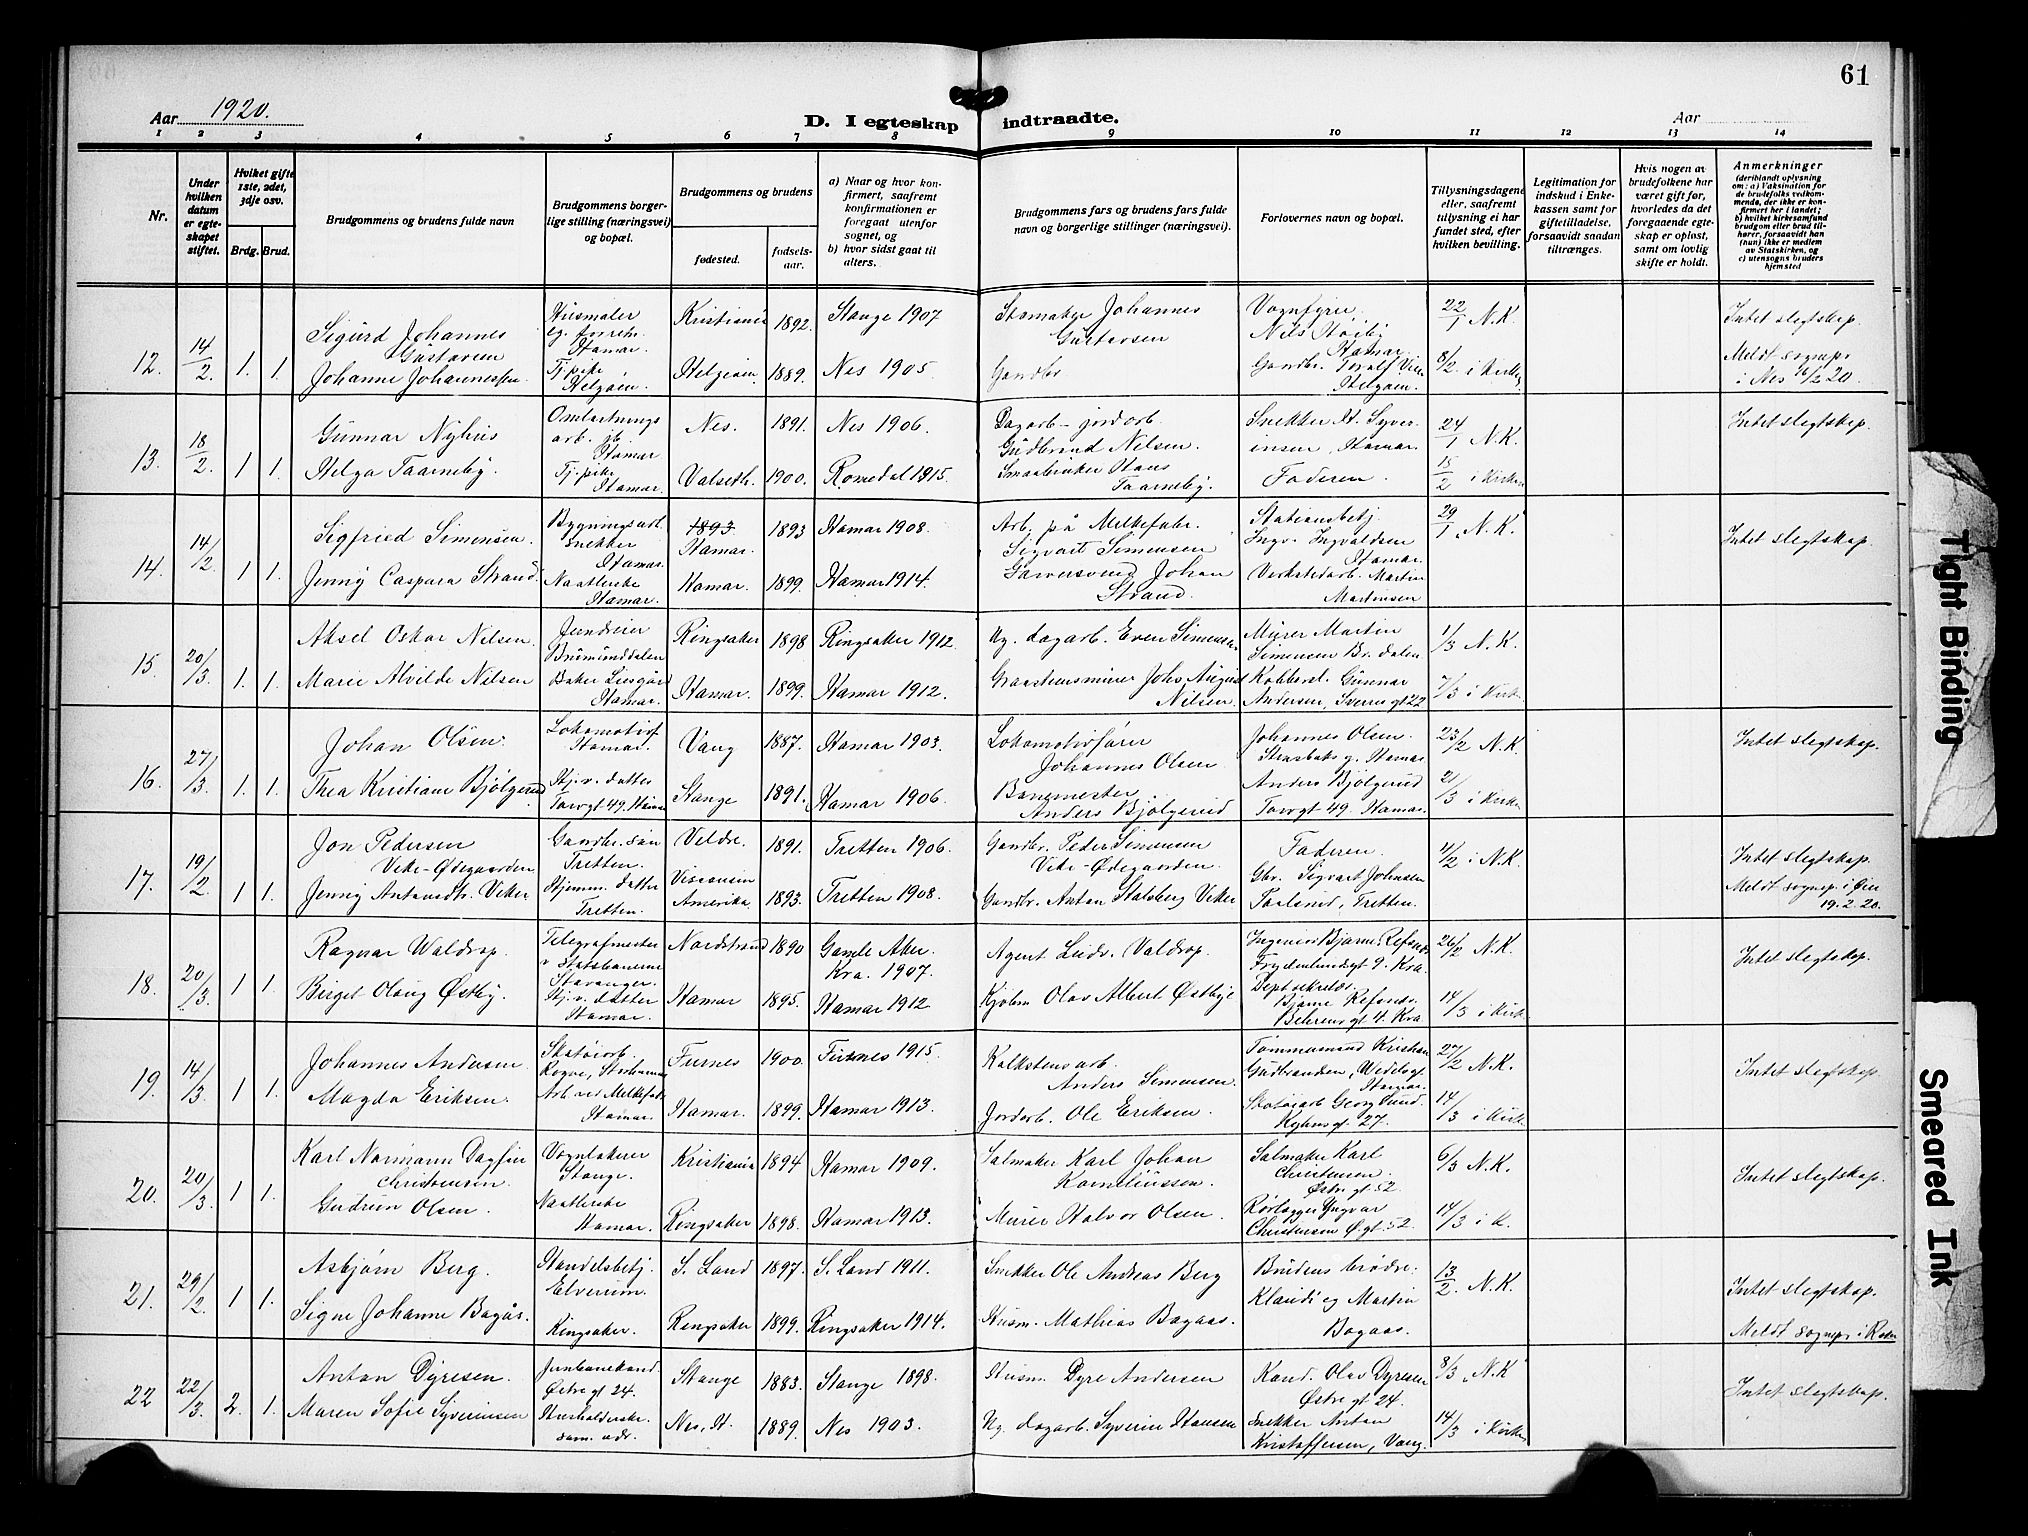 61
Aar 1920.
D. I egteskap indtraadte.
Aar
1 2 3 4 5 6 7 8 9 10 11 12 13 14
Nr.
Under hvilken datum er egteskapet stiftet.
Hvilket gifte 1ste, 2det, 3dje osv.
Brdg. Brud.
Brudgommens og brudens fulde navn
Brudgommens borgerlige stilling (næringsvei) og bopæl.
Brudgommens og brudens
fødested.
fødselsaar.
a) Naar og hvor konfirmert, saafremt konfirmationen er foregaat utenfor sognet, og
b) hvor sidst gaat til alters.
Brudgommens fars og brudens fars fulde navn og borgerlige stillinger (næringsvei).
Forlovernes navn og bopæl.
Tillysningsdagene eller, saafremt tillysning ei har fundet sted, efter hvilken bevilling.
Legitimation for indskud i Enkekassen samt for giftetilladelse, forsaavidt saadan tiltrænges.
Hvis nogen av brudefolkene har været gift før, hvorledes da det foregaaende egteskap er opløst, samt om lovlig skifte er holdt.
Anmerkninger (deriblandt oplysning om: a) Vaksination for de brudefolks vedkommende, der ikke er konfirmert her i landet; b) hvilket kirkesamfund brudgom eller brud tilhører, forsaavidt han (hun) ikke er medlem av Statskirken, og c) utensogns bruders hjemsted
12. 14/2 1. 1. Sigurd Johannes Gustavsen Husmaler Hamar. Kristiania 1892. Stange 1907 Johannes Gustavsen Vognfyrer Nils Hamar. 22/1 N.K. Intet slegtskap.
Johanne Johannessen Tj.pike Helgøen. Helgøen. 1889. Nes 1905. Gaardbr. Gaardbr. Helgøen. 8/2 i Kirken Meldt sognepr. i Nes 16/2 20.
13. 18/2 1 1. Gunnar Nyhus arb. Hamar Nes. 1891. Nes 1906. Dagarb - jordarb Gudbrand Nilsen. Snekker H. Syverinsen, Hamar. 24/1 N.K. Intet slegtskap.
Helga Taarneby. Tj.pike Hamar. Valseth. 1900. Romedal 1915. Smaabruker Hans Taarneby. Faderen. 15/2 i Kirken
14. 14/2 1 1. Sigfried Simensen. Bygningsarb. snekker Hamar. 1893 Hamar. 1893 Hamar 1908. Arb. på Melkefabr. Sigvart Simensen Stationsbetj. Ingv. Ingvaldsen Hamar 29/1 N.K. Intet slegtskap.
Jenny Caspara Strand. Naatlerske Hamar. Hamar. 1899. Hamar 1914. Garversvend Johan Strand. Verkstedarb. Martin Martinsen
15. 20/3 1. 1. Aksel Oskar Nilsen. Brumunddalen Ringsaker 1898 Ringsaker 1912. Ng. dagarb. Even Simensen Murer Martin Simensen Br.dalen 1/3 N.K.
Marie Alvilde Nilsen Hamar. Hamar. 1899. Hamar 1912. Graastensmurer Johs August Nilsen. Kobbersl. Gunnar Andersen, Sverresgt 22 7/3 i Kirk
16. 27/3 1. 1. Johan Olsen. Lokomotivf. Hamar. Vang 1887. Hamar 1903. Lokomotivfører Johannes Olsen. Johannes Olsen. Hamar 23/2 N.K. Intet slegtskap.
Thea Kristiane Bjølgerud Hj.v. datter Torvgt 49. Hamar Stange 1891. Hamar 1906. Banemester Anders Bjølgerud Anders Bjølgerud Torvgt 49. Hamar. 21/3 i Kirken
17. 19/2 1 1. Jon Pedersen Veke-Ødegaarden Gaardbr. søn Tretten. Veldre. 1891. Tretten 1906. Gaardbr. Peder Simensen Veke-Ødegaarden. Faderen. 4/2 i N.K. Intet slegtskap.
Jenny Antonsdtr. Veker Hjemm. datter Tretten. Visconsin Amerika. 1893. Tretten 1908. Gaardbr. Anton Stalsberg Veker Gbr. Sigvart Johnsen Tretten. Meldt sognepr. i 19.2.20.
18. 20/3 1 1. Ragnar Waldrop. Telegrafmester v Statsbanerne Stavanger. Nordstrand 1890 Gamle Aker. Kra. 1907. Agent Ludv. Valdrop. Ingeniør Bjarne Frydenlundsgt 9. Kra. 26/2 N.K. Intet slegtskap.
Birget Olaug Østby. Hj.v. datter Hamar. Hamar 1895. Hamar 1912 Kjøbm. Olav Albert Østbye Dept.sekretær Bjarne Behrensgt 4. Kra. 14/3 i Kirk
19. 14/3 1 1. Johannes Andersen. Skotøiarb. Furnes 1900. Furnes 1915. Kalkstensarb. Anders Simensen. Tømmermand Kristian Gudbrandsen, Hamar. 27/2 N.K. Intet slegtskap.
Magda Eriksen. Arb. ved Melkefab. Hamar. Hamar. 1899. Hamar 1913. Jordarb. Ole Eriksen. Skotøiarb Georg Lund. 27. 14/3 i Kirk
20. 20/3 1 1. Karl Normann Dagfin Christensen. Vognlakerer Stange. Kristiania 1894 Hamar 1909. Salmaker Karl Johan Korneliussen. Salmaker Karl Christensen. Østre gt 52. 6/3 N.K. Intet slegtskap.
Gudrun Olsen. Naatlerske Hamar. Ringsaker 1898. Hamar 1913. Murer Halvor Olsen. Rørlægger Yngvar Christensen Ø.gt 52. 14/3 i K.
21. 29/2 1 1. Asbjørn Berg. Handelsbetj. Elverum. S. Land 1897. S. Land 1911. Snekker Ole Andreas Berg Brudens brødre. 13/2 N.K. Intet slegtskap.
Signe Johanne Bogås. Ringsaker. Ringsaker 1899. Ringsaker 1914. Husm. Mathias Bogaas. Klaus og Martin Bogaas. Meldt sognepr. i
22 22/3 2. 1. Anton Dyresen. Østre gt 24. Stange 1883. Stange 1898. Husm. Dyre Andersen Kand. Olav Dyresen Østre gt 24. 8/3 N.K. Intet slegtskap.
Maren Sofie Syverinsen Husholderske. sam. adr. Nes, H. 1889. Nes 1903. Ng. dagarb. Syverin Hansen Snekker Anton Kristoffersen, Vang. 14/3 i Kirken
Tight Binding
Smeared Ink